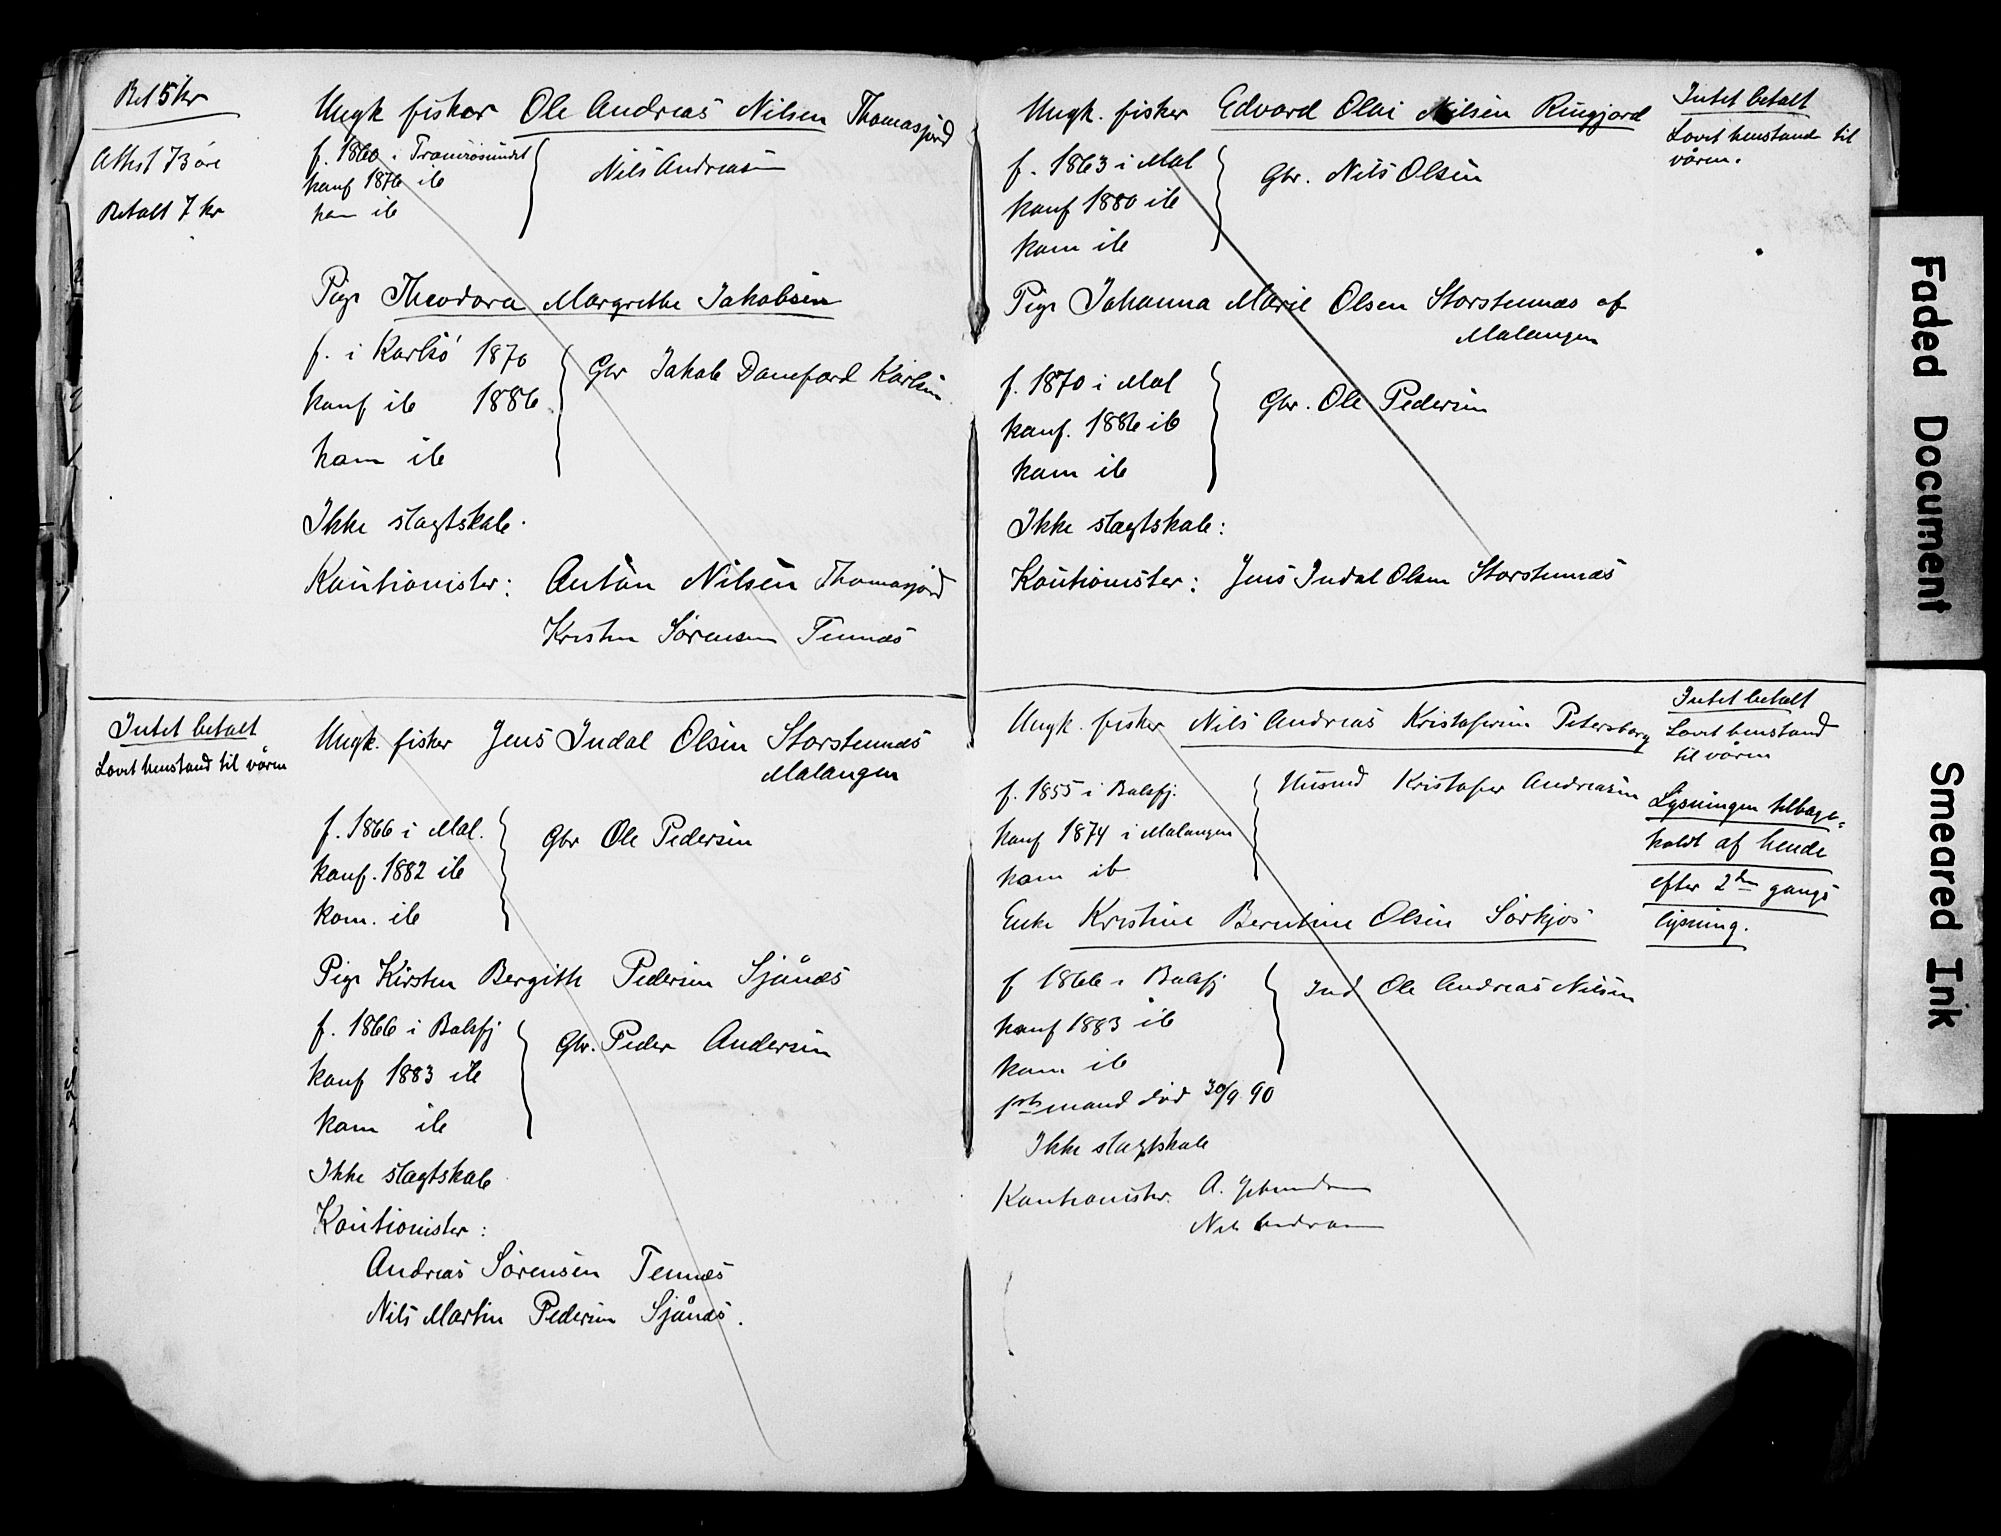 Bet 5 kr
Attest 73 øre
Betalt 7 kr
Ungk fisker Ole Andreas Nilsen Thomasjord
f. 1860 i Tromsøsundet
konf 1876 ib
kom ib
Nils Andreasen
Pige Theodora Margrethe Jakobsen
f. i Karlsø 1870
konf ib 1886
kom ib
Gbr Jakob Karlsen
Ikke slægtskab.
Kautionister: Anton Nilsen Thomasjord
Kristen Sørensen Tennæs
Intet betalt
Lovet henstand til våren
Ungk. fisker Jens Indal Olsen Storstennæs
Malangen
f. 1866 i Mal.
konf. 1882 ib
kom. ib
Gbr Ole Pedersen
Pige Kirsten Bergith Pedersen Sjånæs
f. 1866 i Balsfj
konf 1883 ib
kom ib
Gbr. Peder Andersen
Ikke slægtskab
Kautionister:
Andreas Sørensen Tennæs
Nils Martin Pedersen Sjånæs.
Ungk. fisker Edvard Olai Nilsen
f. 1863 i Mal
konf 1880 ib
kom ib
Gbr. Nils Olsen
Intet betalt
Lovet henstand til
våren.
Pige Johanna Marie Olsen Storstennæs af
Malangen
f. 1870 i Mal
konf. 1886 ib
kom ib
Gbr. Ole Pedersen
Ikke slægtskab:
Kautionister: Jens Indal Olsen Storstennæs
Ungk. fisker Nils Andreas Kristofersen Petersborg
f. 1855 i Balsfj.
konf 1874 i Malangen
kom ib
Husmd Kristofer Andreasen
Intet betalt
Lovet henstand
til våren
Lysningen tilbage-
holdt af hende
efter 2den gangs
lysning.
Enke Kristine Berntine Olsen Sørkjos
f 1866 i Balsfj
konf 1883 ib
kom ib
Ind Ole Andreas Nilsen
mand død 30/9 90
Ikke slægtskab
Kautionister: A.
Faded Document
Smeared Ink